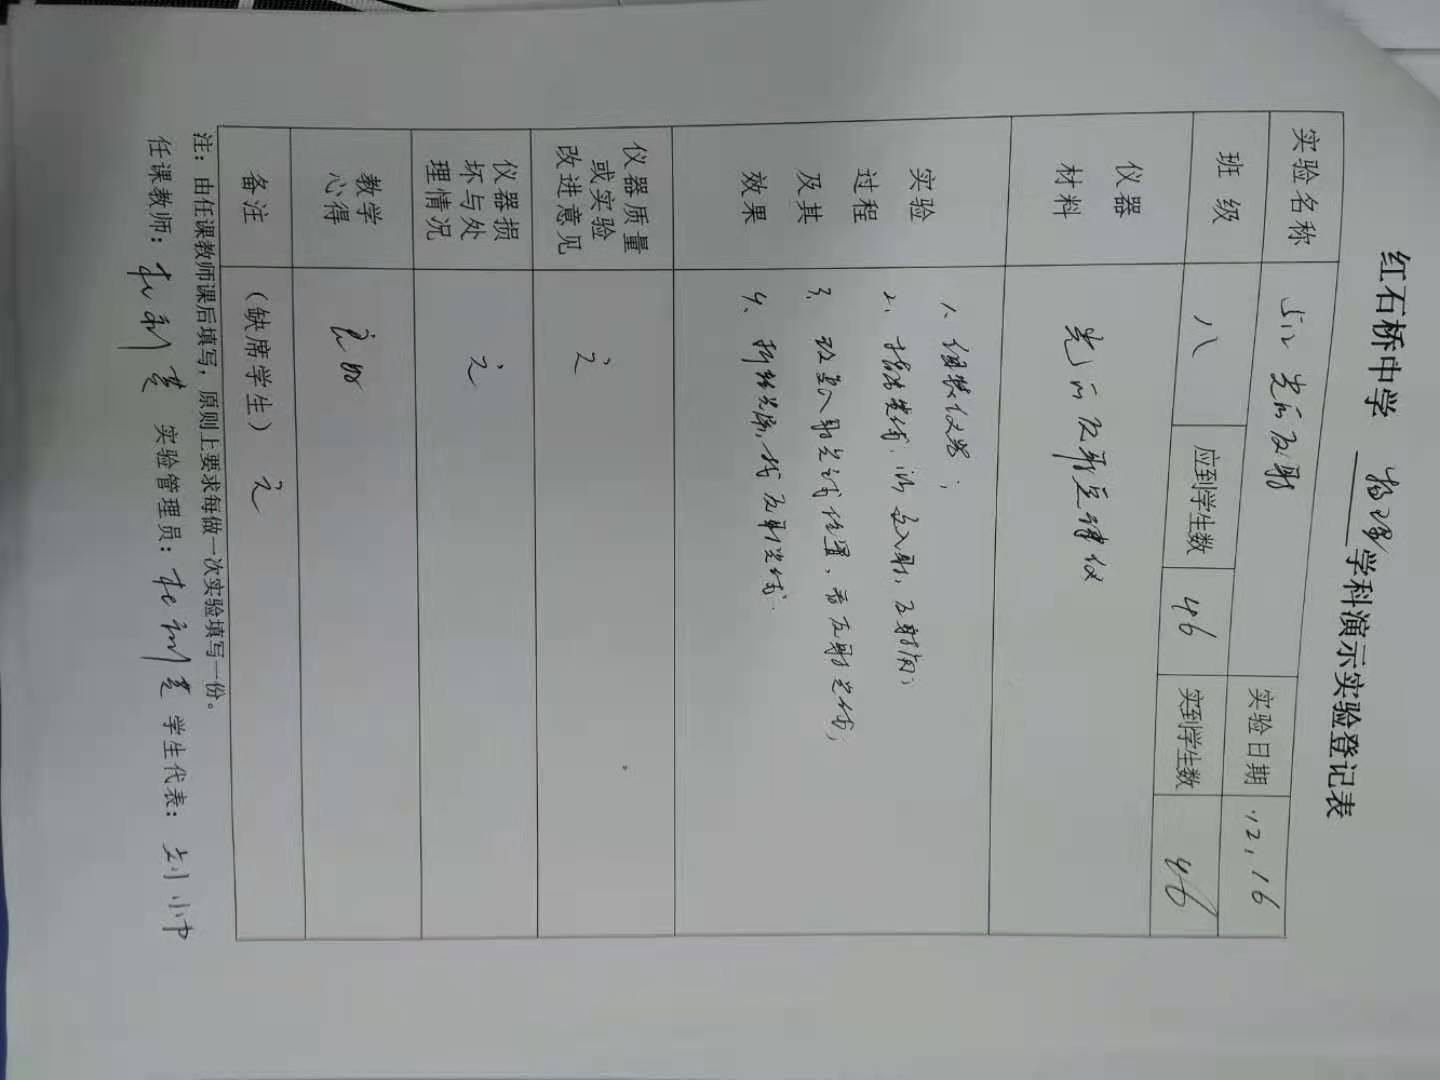 红石桥中学 物理 学科演示实验登记表
实验名称 光的反射 实验日期 12,16
班级 八 应到学生数 46 实到学生数 46
仪器
材料
光的反射演示仪
实验
过程
及其
效果
1、组装仪器;
3、改变入射光线位置,看反射光线;
仪器质量
或实验
改进意见
无
仪器损
坏与处
理情况
无
教学
心得
良好
备注 (缺席学生) 无
注:由任课教师课后填写,原则上要求每做一次实验填写一份。
任课教师: 实验管理员: 学生代表: 刘小巾